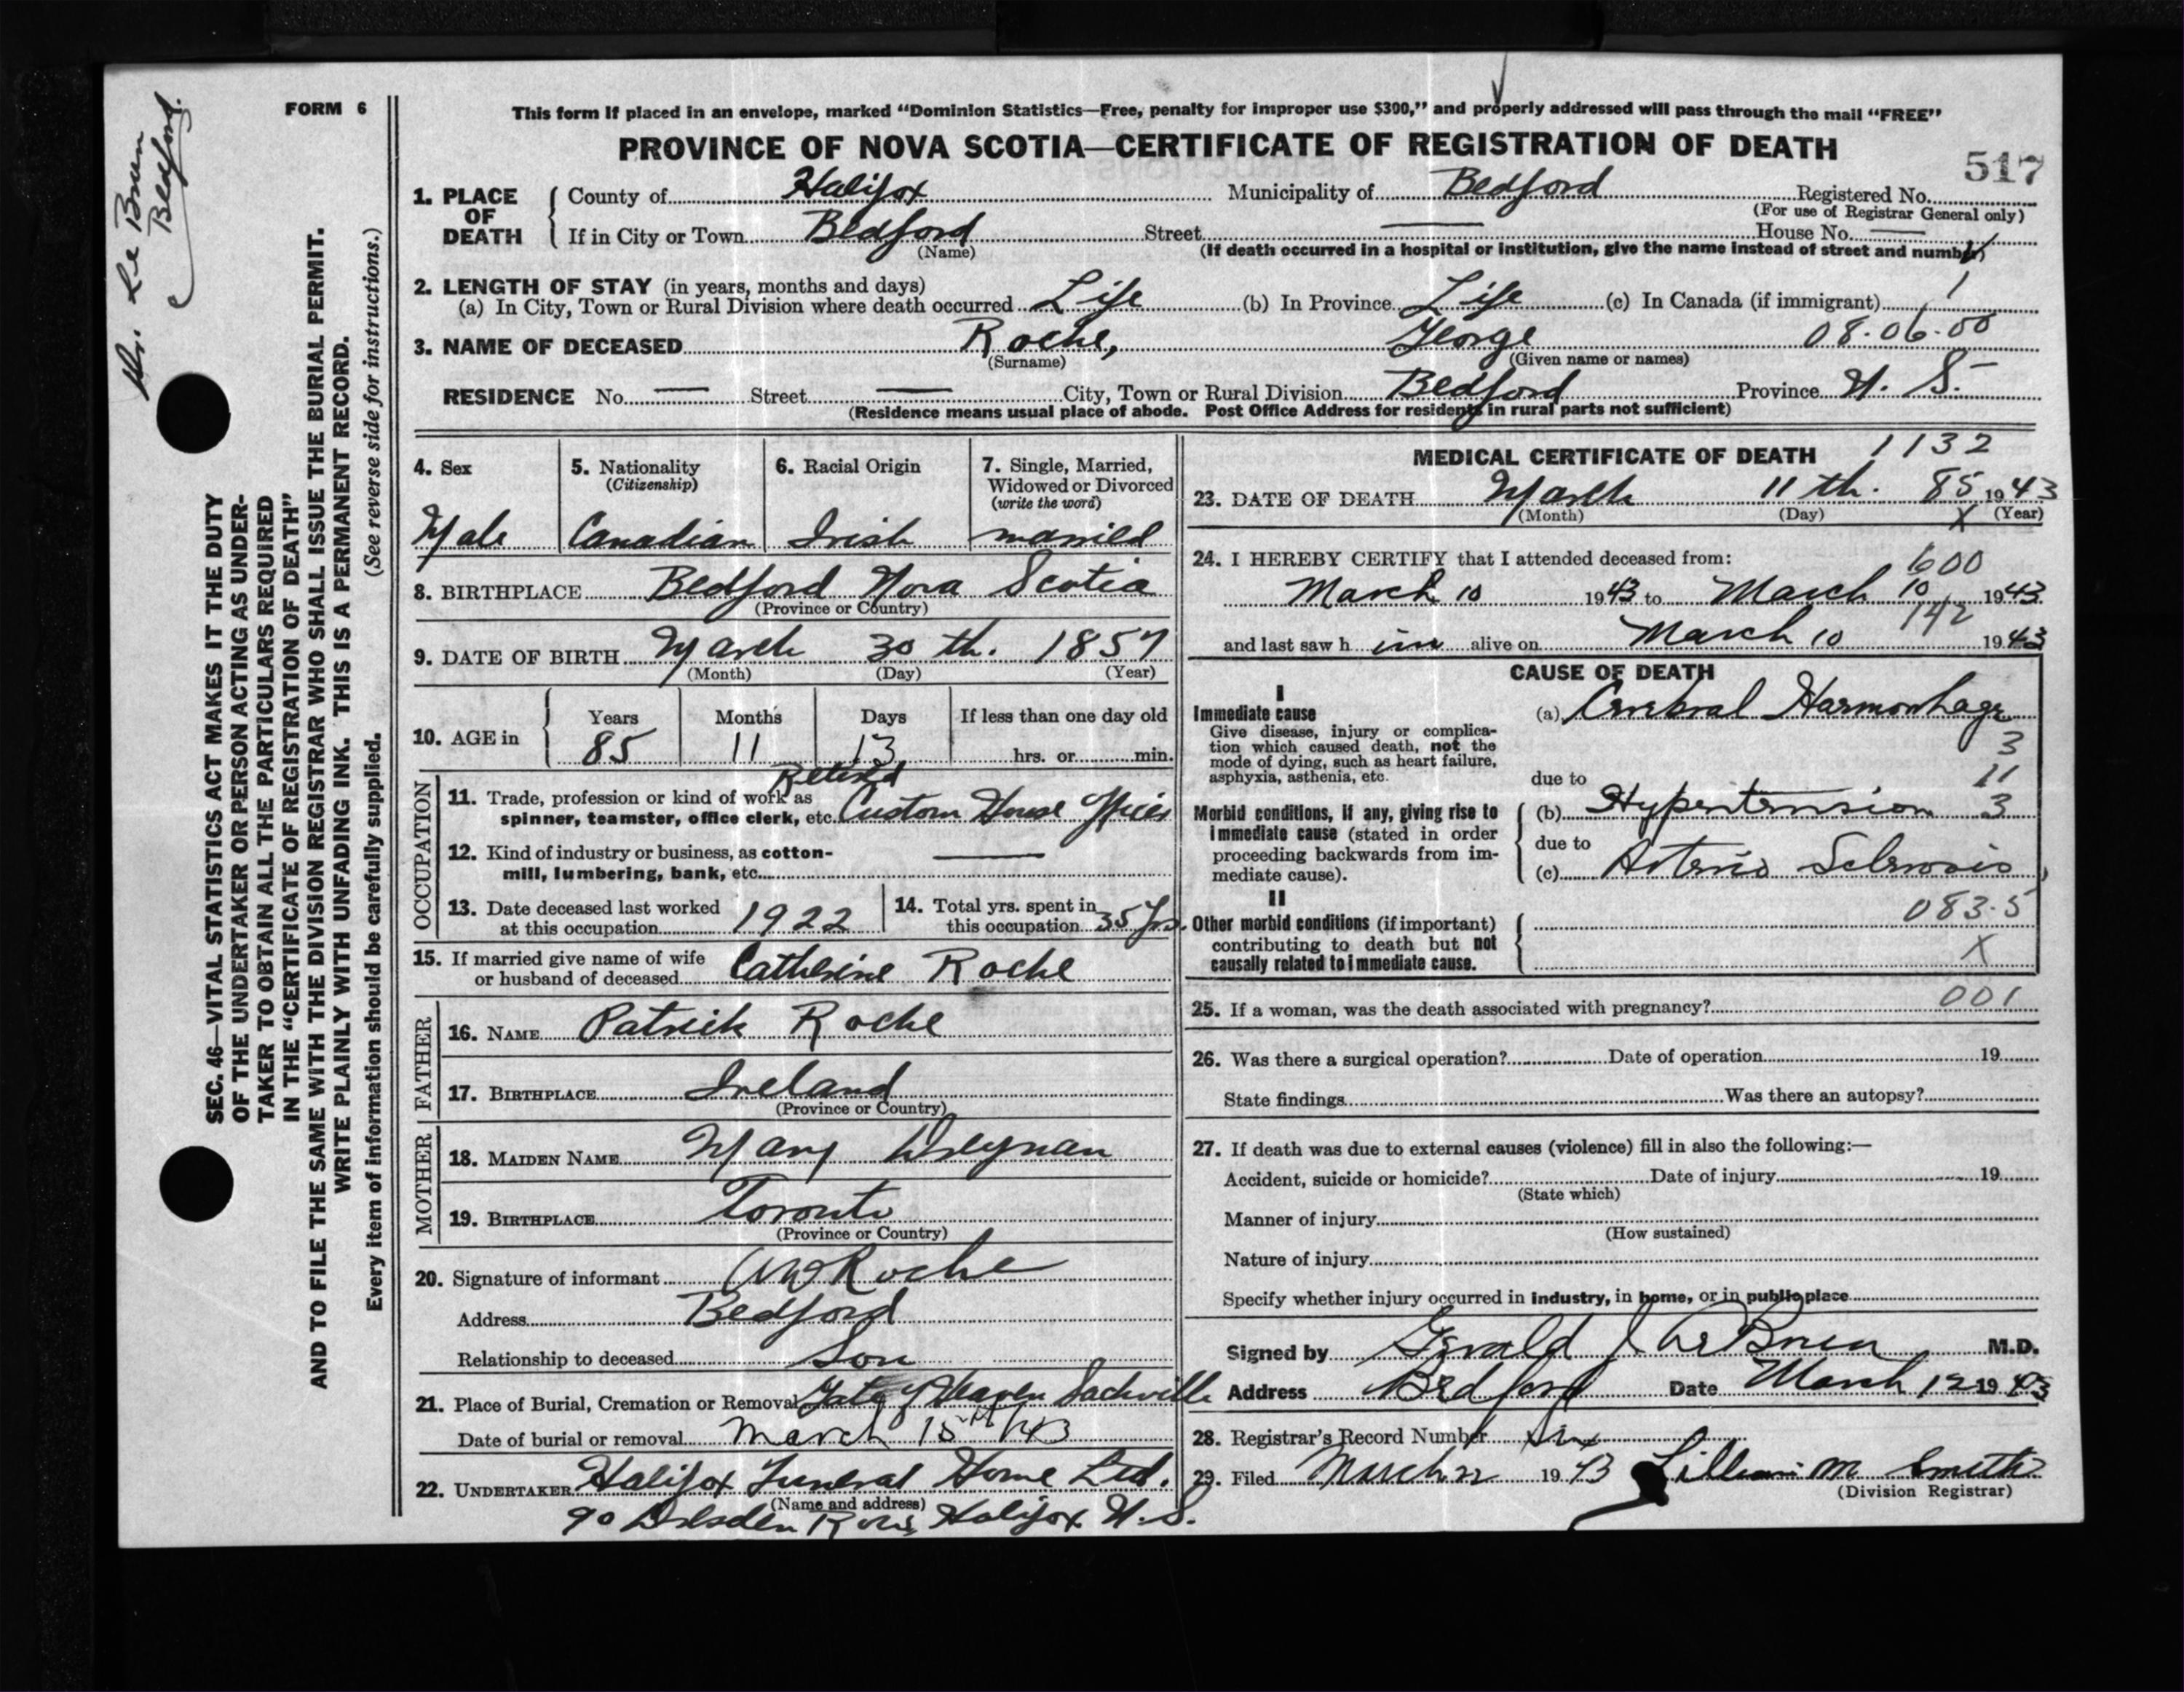 FORM 6
This form if placed in an envelope, marked “Dominion Statistics—Free, penalty for improper use $300,” and properly addressed will pass through the mail “FREE”
PROVINCE OF NOVA SCOTIA—CERTIFICATE OF REGISTRATION OF DEATH
517
1. PLACE OF DEATH
County of Halifax Municipality of Bedford Registered No.
(For use of Registrar General only)
If in City or Town Bedford Street — House No. —
(Name) (If death occurred in a hospital or institution, give the name instead of street and number)
2. LENGTH OF STAY (in years, months and days)
(a) In City, Town or Rural Division where death occurred Life (b) In Province Life (c) In Canada (if immigrant) 1
3. NAME OF DECEASED Roche, George 08.06.00
(Surname) (Given name or names)
RESIDENCE No. — Street — City, Town or Rural Division Bedford Province N. S.
(Residence means usual place of abode. Post Office Address for residents in rural parts not sufficient)
4. Sex
Male
5. Nationality
(Citizenship)
Canadian
6. Racial Origin
Irish
7. Single, Married,
Widowed or Divorced
(write the word)
married
8. BIRTHPLACE Bedford Nova Scotia
(Province or Country)
9. DATE OF BIRTH March 30 th. 1857
(Month) (Day) (Year)
10. AGE in
Years Months Days If less than one day old
85 11 13 hrs. or min.
OCCUPATION
Retired
11. Trade, profession or kind of work as
spinner, teamster, office clerk, etc. Custom House
12. Kind of industry or business, as cotton-
mill, lumbering, bank, etc. —
13. Date deceased last worked
at this occupation 1922
14. Total yrs. spent in
this occupation 35 Yrs.
15. If married give name of wife
or husband of deceased Catherine Roche
FATHER
16. NAME Patrick Roche
17. BIRTHPLACE Ireland
(Province or Country)
MOTHER
18. MAIDEN NAME Mary
19. BIRTHPLACE Toronto
(Province or Country)
20. Signature of informant Roche
Address Bedford
Relationship to deceased Son
21. Place of Burial, Cremation or Removal Gate of Heaven Sackville
Date of burial or removal March 15th/43
22. UNDERTAKER Halifax Funeral Home Ltd.
(Name and address)
90 Dresden Row, Halifax N.S.
MEDICAL CERTIFICATE OF DEATH 1132
23. DATE OF DEATH March 11 th. 85 1943
(Month) (Day) X (Year)
24. I HEREBY CERTIFY that I attended deceased from:
600
March 10 1943 to March 10 1943
142
and last saw h im alive on March 10 1943
CAUSE OF DEATH
I
Immediate cause
Give disease, injury or complica-
tion which caused death, not the
mode of dying, such as heart failure,
asphyxia, asthenia, etc.
(a) Cerebral Harmorhage
3
11
due to
Morbid conditions, if any, giving rise to
immediate cause (stated in order
proceeding backwards from im-
mediate cause).
(b) Hypertension 3
due to
(c) Arterio Sclerosis
II
083.5
Other morbid conditions (if important)
contributing to death but not
causally related to immediate cause.
X
25. If a woman, was the death associated with pregnancy? 001
26. Was there a surgical operation? Date of operation 19
State findings Was there an autopsy?
27. If death was due to external causes (violence) fill in also the following:—
Accident, suicide or homicide? Date of injury 19
(State which)
Manner of injury
(How sustained)
Nature of injury
Specify whether injury occurred in industry, in home, or in public place
Signed by Gerald J LeBrun M.D.
Address Bedford Date March 12 1943
28. Registrar's Record Number Six
29. Filed March 22 1943 Lillian M Smith
(Division Registrar)
Dr. Le Brun
Bedford.
SEC. 46—VITAL STATISTICS ACT MAKES IT THE DUTY
OF THE UNDERTAKER OR PERSON ACTING AS UNDER-
TAKER TO OBTAIN ALL THE PARTICULARS REQUIRED
IN THE “CERTIFICATE OF REGISTRATION OF DEATH”
AND TO FILE THE SAME WITH THE DIVISION REGISTRAR WHO SHALL ISSUE THE BURIAL PERMIT.
WRITE PLAINLY WITH UNFADING INK. THIS IS A PERMANENT RECORD.
Every item of information should be carefully supplied. (See reverse side for instructions.)